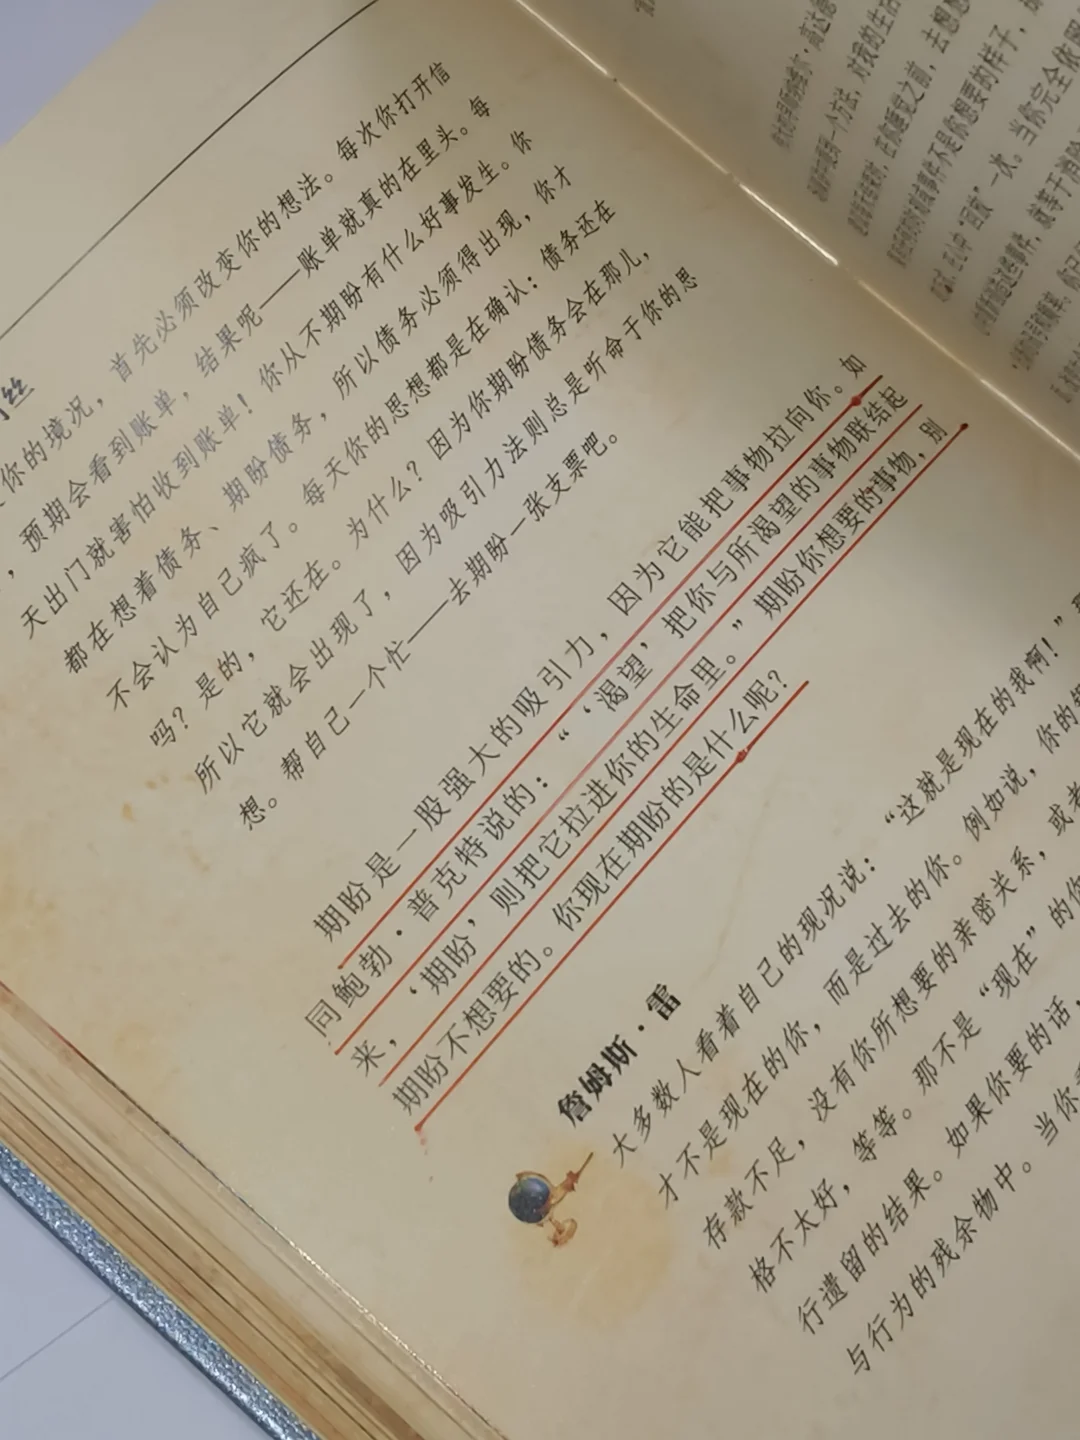 丝
你的境况，首先必须改变你的想法。每次你打开信
，预期会看到账单，结果呢——账单就真的在里头。每
天出门就害怕收到账单！你从不期盼有什么好事发生。你
都在想着债务、期盼债务，所以债务必须得出现，你才
不会认为自己疯了。每天你的思想都是在确认：债务还在
吗？是的，它还在。为什么？因为你期盼债务会在那儿，
所以它就会出现了，因为吸引力法则总是听命于你的思
想。帮自己一个忙——去期盼一张支票吧。
期盼是一股强大的吸引力，因为它能把事物拉向你。如
同鲍勃·普克特说的：“‘渴望’把你与所渴望的事物联结起
来，‘期盼’则把它拉进你的生命里。”期盼你想要的事物，别
期盼不想要的。你现在期盼的是什么呢？
詹姆斯·雷
大多数人看着自己的现况说：“这就是现在的我啊！”
才不是现在的你，而是过去的你。例如说，你的
存款不足，没有你所想要的亲密关系，或者
格不太好，等等。那不是“现在”的你
行遗留的结果。如果你要的话，
与行为的残余物中。当你
一个方法，对我的生活
在你睡觉之前，去想想
不是你想要的样子，
在心中“回放”一次。当你完全依照
就等于消除